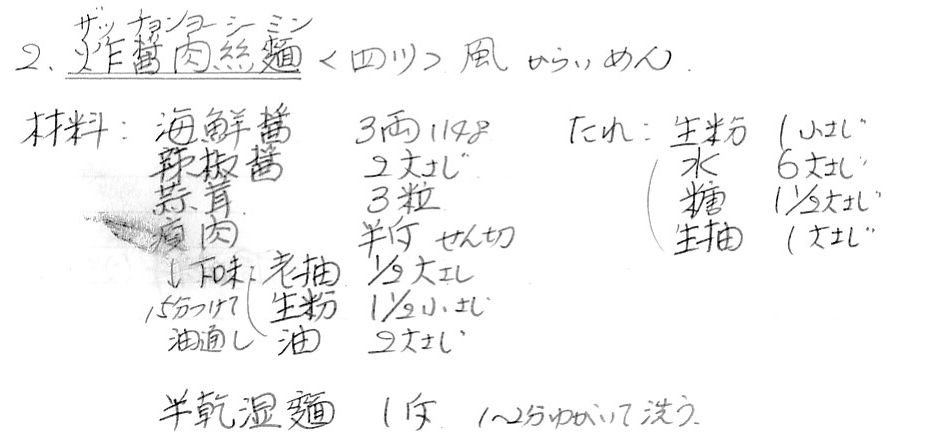 ザッ チョンヨーシーミン
2、炸醬肉絲麵 <四川> 風 からいめん.
材料: 海鮮醬 3両 114g たれ: 生粉 1小さじ
辣椒醬 2大さじ 水 6大さじ
蒜茸 3粒 糖 1 1/2大さじ
瘦肉 半斤 せん切 生抽 1大さじ
↓下味: 老抽 1/2大さじ
15分つけて 生粉 1 1/2小さじ
油通し 油 2大さじ
半乾湿麵 1斤 1〜2分ゆがいて洗う.